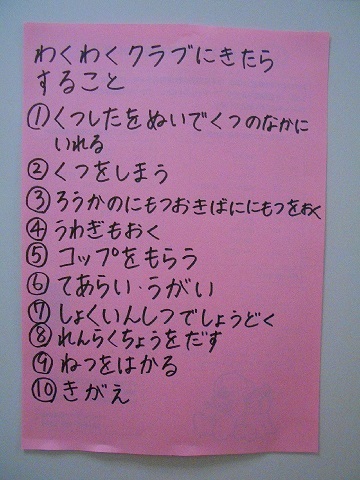 わくわくクラブにきたら
すること
①くつしたをぬいでくつのなかに
いれる
②くつをしまう
③ろうかのにもつおきばににもつをおく
④うわぎもおく
⑤コップをもらう
⑥てあらい・うがい
⑦しょくいんしつでしょうどく
⑧れんらくちょうをだす
⑨ねつをはかる
⑩きがえ